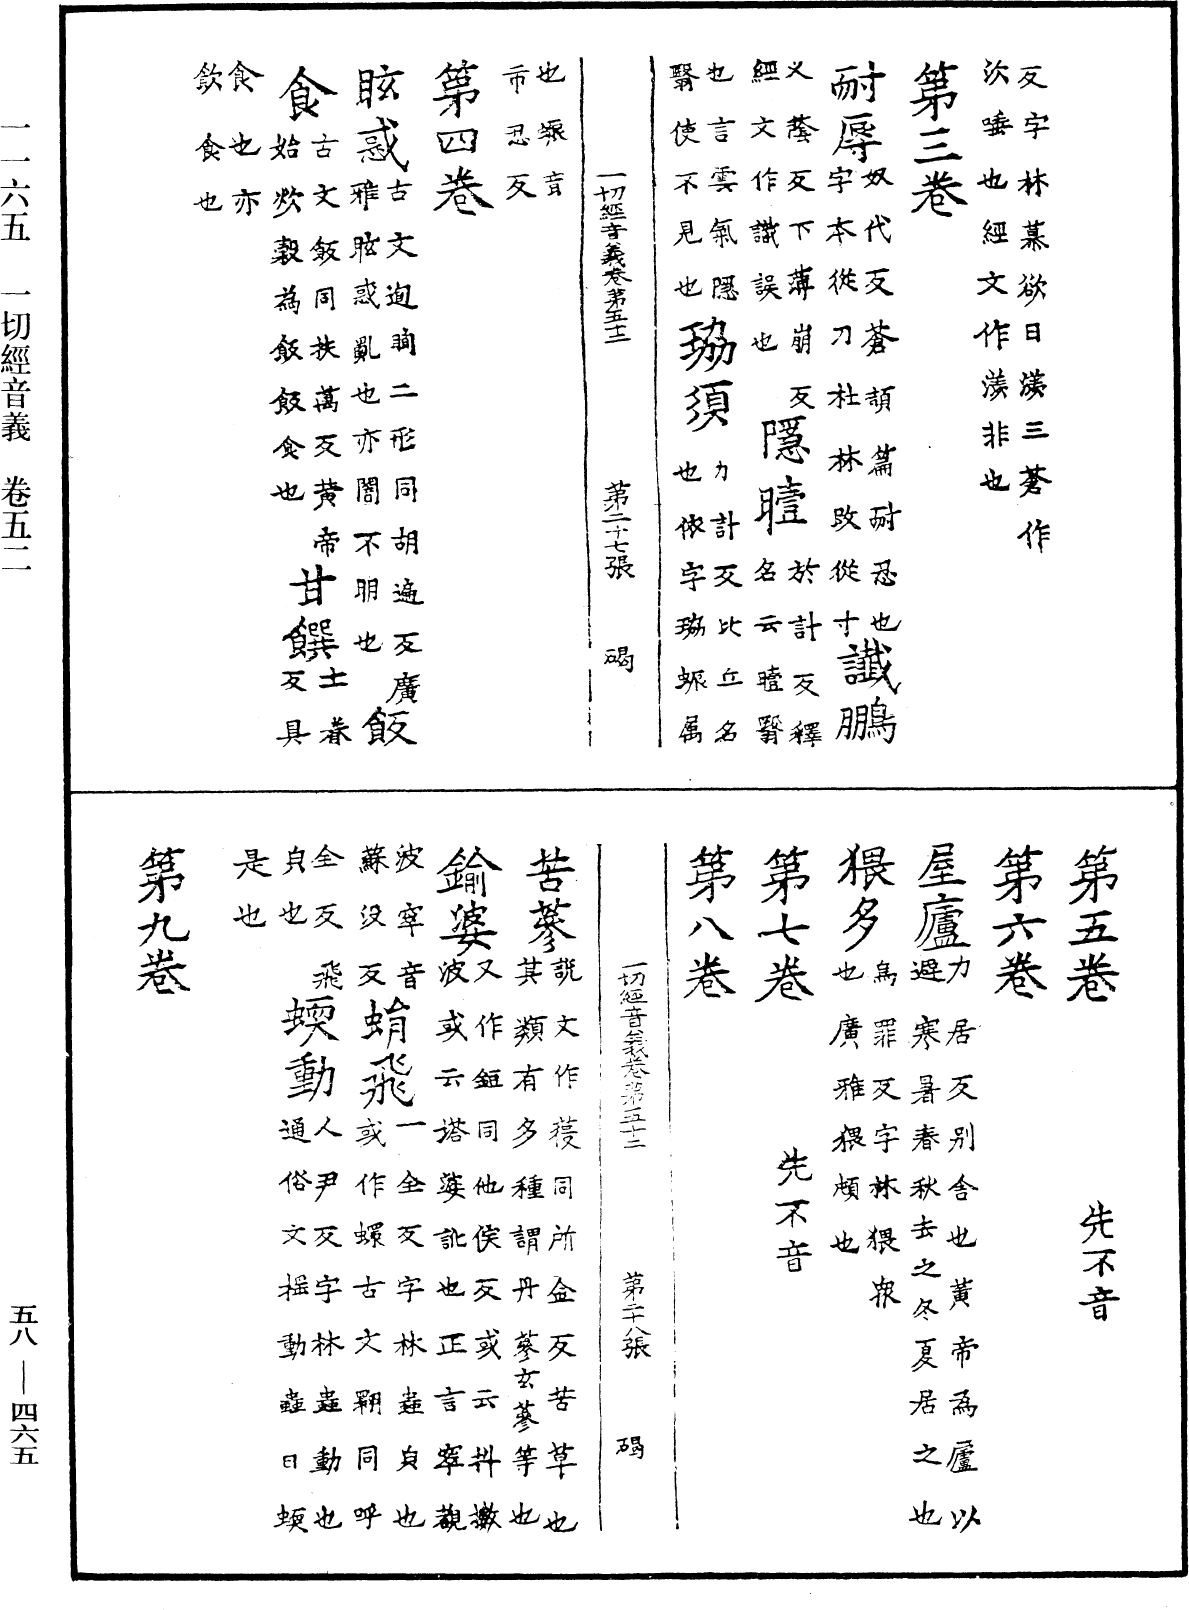 反字林慕欲日羨三蒼作
㳄唾也經文作羨非也
第三卷
耐辱奴代反蒼頡篇耐忍也
字本從刀杜林改從寸讖鵬
义蔭反下薄崩反
經文作識誤也隱曀於計反釋
名云曀翳
也言雲氣隱
翳使不見也珕須力計反比丘名
也依字珕蜄属
一切經音義卷第五十二 第二十七張 碣
也蜄音
市忍反
第四卷
眩惑古文迿眴二形同胡遍反廣
雅眩惑亂也亦闇不明也飯
食古文飯同扶萬反黄帝
始炊穀為飯飯食也甘饌士眷
反具
食也亦
飲食也
第五卷 先不音
第六卷
屋廬力居反別舍也黄帝為廬以
避寒暑春秋去之冬夏居之也
猥多烏罪反字林猥衆
也廣雅猥頓也
第七卷 先不音
第八卷
一切經音義卷第五十二 第二十八張 碣
苦蔘説文作葠同所金反苦草也
其類有多種謂丹蔘玄蔘等也
鍮婆又作鋀同他侯反或云抖擻
波或云塔婆訛也正言窣覩
波窣音
蘇没反蜎飛一全反字林蟲皃也
或作蠉古文翾同呼
全反飛
皃也蝡動人尹反字林蟲動也
通俗文揺動蟲曰蝡
是也
第九卷
一一六五 一切經音義 卷五二
五八—四六五